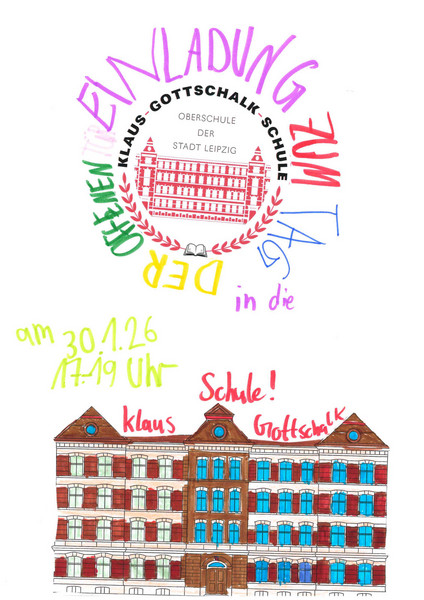 EINLADUNG
ZUM
TAG
DER
OFFENEN
KLAUS-GOTTSCHALK-SCHULE
OBERSCHULE
DER
STADT LEIPZIG
in die
am 30.1.26
17-19 Uhr
Schule!
Klaus Gottschalk